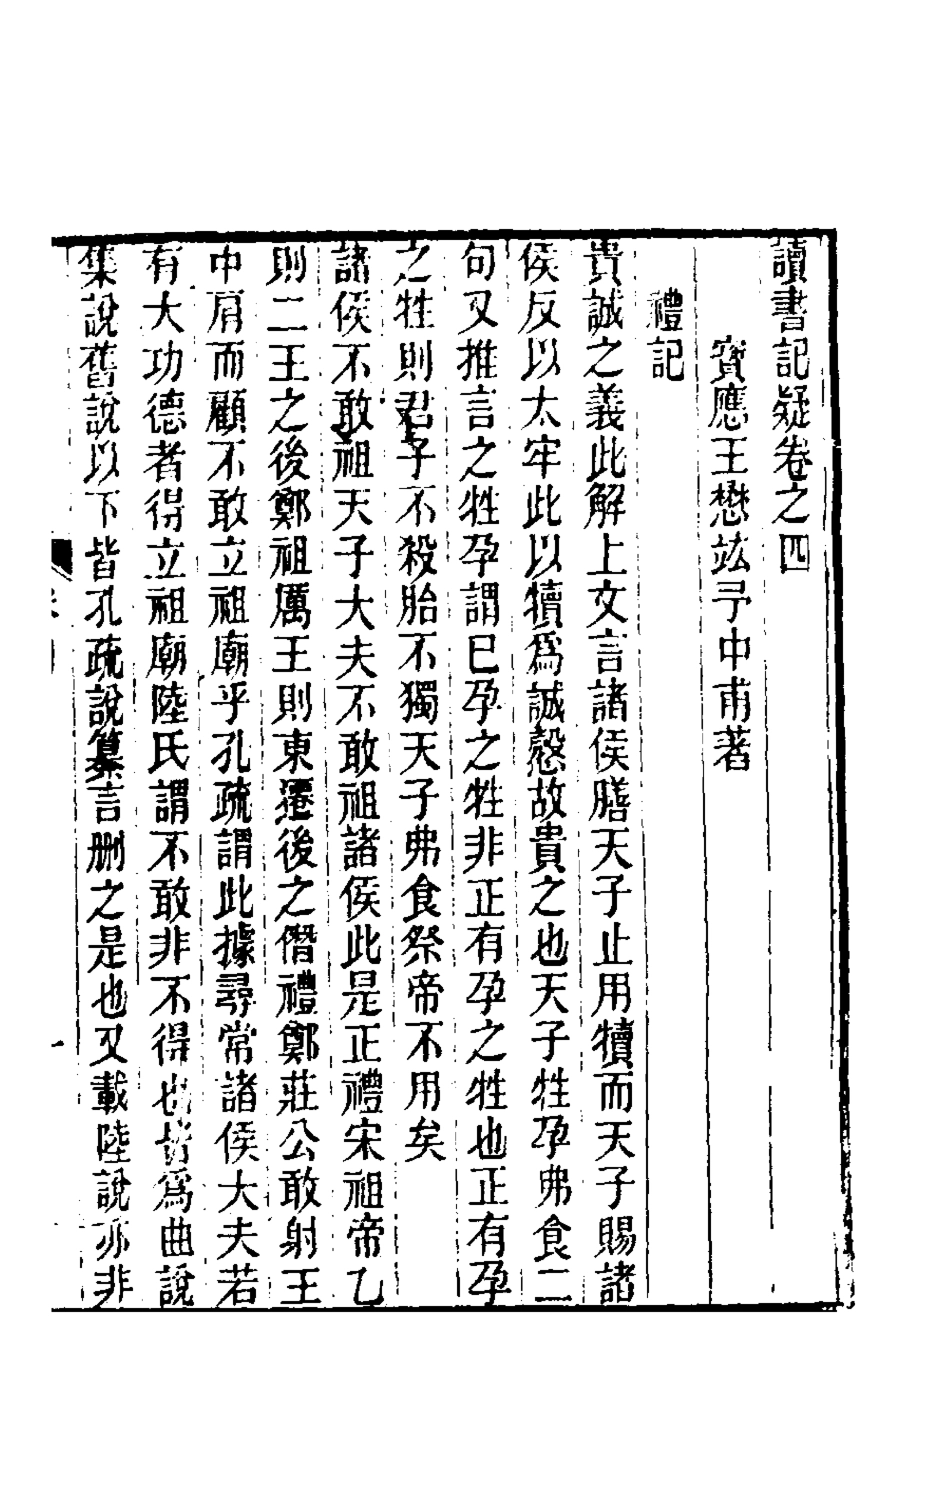 讀書記疑卷之四
寶應王懋竑予中甫著
禮記
貴誠之義此解上文言諸侯膳天子止用犢而天子賜諸
侯反以太牢此以犢爲誠慤故貴之也天子牲孕弗食二
句又推言之牲孕謂已孕之牲非正有孕之牲也正有孕
之牲則君子不殺胎不獨天子弗食祭帝不用矣
諸侯不敢祖天子大夫不敢祖諸侯此是正禮宋祖帝乙
則二王之後鄭祖厲王則東遷後之僭禮鄭莊公敢射王
中肩而顧不敢立祖廟乎孔疏謂此據尋常諸侯大夫若
有大功德者得立祖廟陸氏謂不敢非不得也皆爲曲說
集說舊說以下皆孔疏說纂言删之是也又載陸說亦非